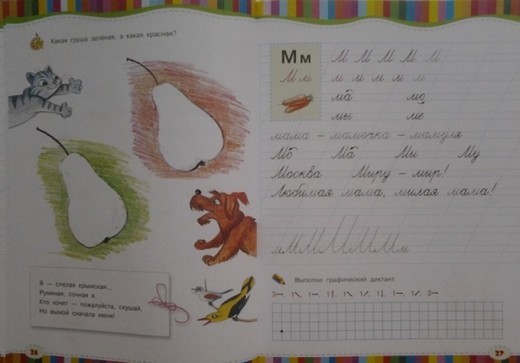 Какая груша зелёная, а какая красная?
Я — спелая крымская...
Румяная, сочная я.
Кто хочет — пожалуйста, скушай,
Но вымой сначала меня!
26
Мм
М М М М М
М м м м м м м
ма мо
мы ме
мама – мамочка – мамуля
Мо Ма Ми Му
Москва Миру – мир!
Любимая мама, милая мама!
мММММм
Выполни графический диктант.
27